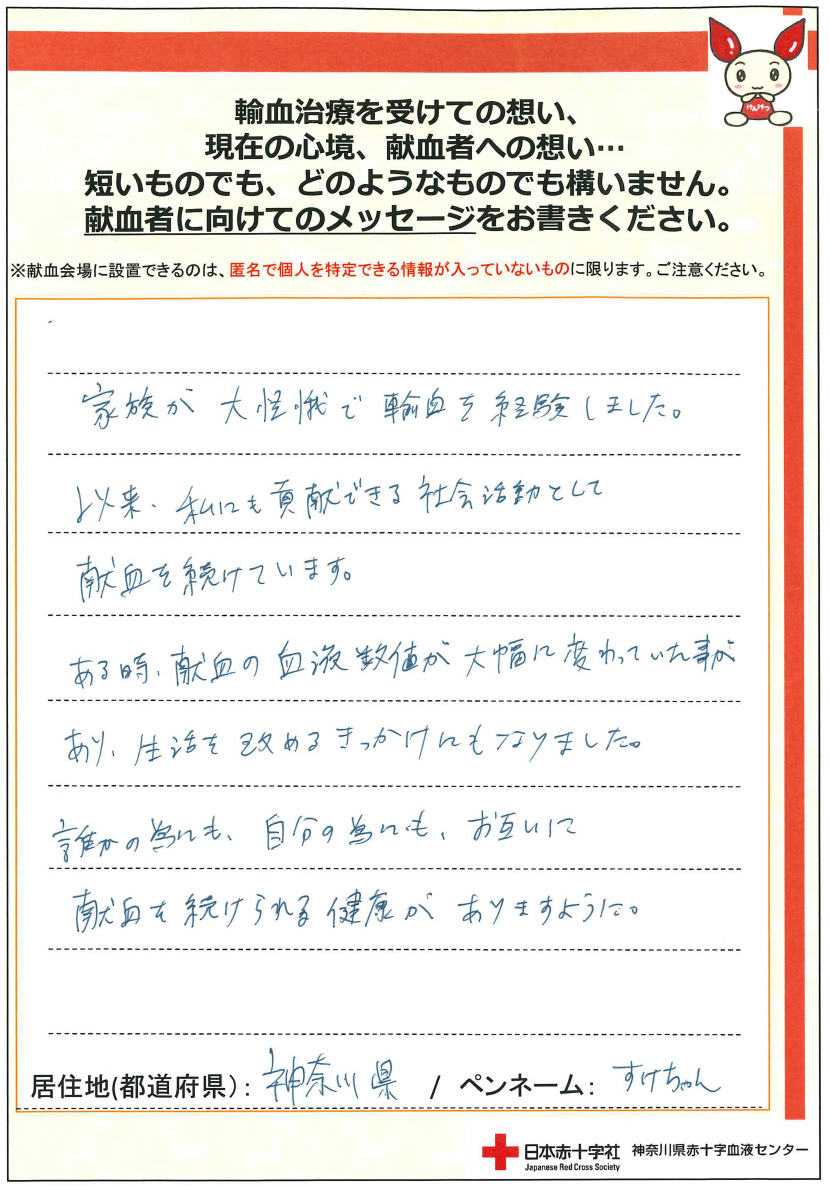 けんけつ
輸血治療を受けての想い、
現在の心境、献血者への想い…
短いものでも、どのようなものでも構いません。
献血者に向けてのメッセージをお書きください。
※献血会場に設置できるのは、匿名で個人を特定できる情報が入っていないものに限ります。ご注意ください。
家族が 大怪我で 輸血を 経験しました。
以来、私にも貢献できる社会活動として
献血を続けています。
ある時、献血の血液数値が 大幅に変わっていた事が
あり、生活を改めるきっかけにもなりました。
誰かの為にも、自分の為にも、お互いに
献血を続けられる健康が ありますように。
居住地(都道府県): 神奈川県 / ペンネーム: すけちゃん
日本赤十字社 神奈川県赤十字血液センター
Japanese Red Cross Society